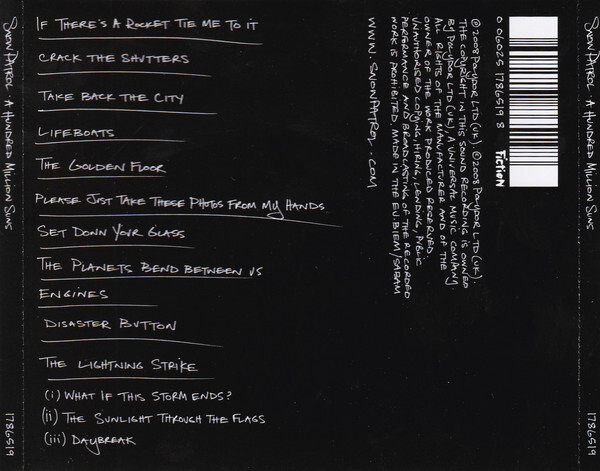 SNOW PATROL · A HUNDRED MILLION SUNS
1786519
IF THERE'S A ROCKET TIE ME TO IT
CRACK THE SHUTTERS
TAKE BACK THE CITY
LIFEBOATS
THE GOLDEN FLOOR
PLEASE JUST TAKE THESE PHOTOS FROM MY HANDS
SET DOWN YOUR GLASS
THE PLANETS BEND BETWEEN US
ENGINES
DISASTER BUTTON
THE LIGHTNING STRIKE
(i) WHAT IF THIS STORM ENDS?
(ii) THE SUNLIGHT THROUGH THE FLAGS
(iii) DAYBREAK
0 06025 1786519 8
FICTION
℗ 2008 POLYDOR LTD (UK). © 2008 POLYDOR LTD (UK).
THE COPYRIGHT IN THIS SOUND RECORDING IS OWNED
BY POLYDOR LTD (UK), A UNIVERSAL MUSIC COMPANY.
ALL RIGHTS OF THE MANUFACTURER AND OF THE
OWNER OF THE WORK PRODUCED RESERVED.
UNAUTHORISED COPYING, HIRING, LENDING, PUBLIC
PERFORMANCE AND BROADCASTING OF THE RECORDED
WORK IS PROHIBITED. MADE IN THE EU. BIEM/SABAM
WWW.SNOWPATROL.COM
SNOW PATROL · A HUNDRED MILLION SUNS
1786519